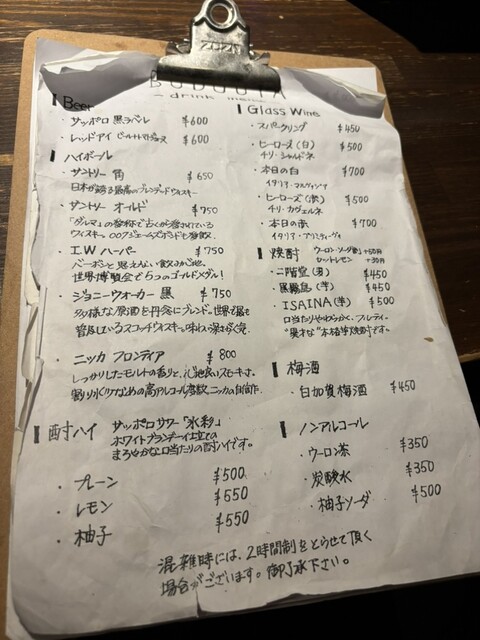 ZUZU
- drink menu -
Beer
・サッポロ 黒ラベル ¥600
・レッドアイ ビール+トマトジュース ¥600
ハイボール
・サントリー 角 ¥650
日本が誇る最高のブレンデッドウイスキー
・サントリー オールド ¥750
「ダルマ」の愛称で古くから愛されている
ウィスキー。007ジェームズボンドも
・I.W ハーパー ¥750
バーボンと思えない飲みやすさ。
世界博覧会で5つのゴールドメダル!
・ジョニーウォーカー 黒 ¥750
多様な原酒を丹念にブレンド。世界で最も
普及しているスコッチウィスキー。味わい深き
・ニッカ フロンティア ¥800
しっかりしたモルトの香りと、心地良いスモーキーさ。
割り水のアルコール度数。ニッカの自信作。
酎ハイ サッポロサワー「氷彩」
ホワイトブランデー仕立ての
まろやかな口当たりの酎ハイです。
・プレーン ¥500
・レモン ¥550
・柚子 ¥550
Glass Wine
・スパークリング ¥450
・ヒーローズ(白) ¥500
チリ・シャルドネ
・本日の白 ¥700
イタリア・マルヴァジア
・ヒーローズ(赤) ¥500
チリ・カヴェルネ
・本日の赤 ¥700
イタリア・プリミティーヴォ
焼酎 ウーロン・ソーダ割り +50円
セットレモン +30円
・二階堂(麦) ¥450
・黒霧島(芋) ¥450
・ISAINA(芋) ¥500
口当たりやわらかく、フルーティ。
"果すな"本格芋焼酎です。
梅酒
・白加賀梅酒 ¥450
ノンアルコール
・ウーロン茶 ¥350
・炭酸水 ¥350
・柚子ソーダ ¥500
混雑時には、2時間制をとらせて頂く
場合がございます。御了承下さい。